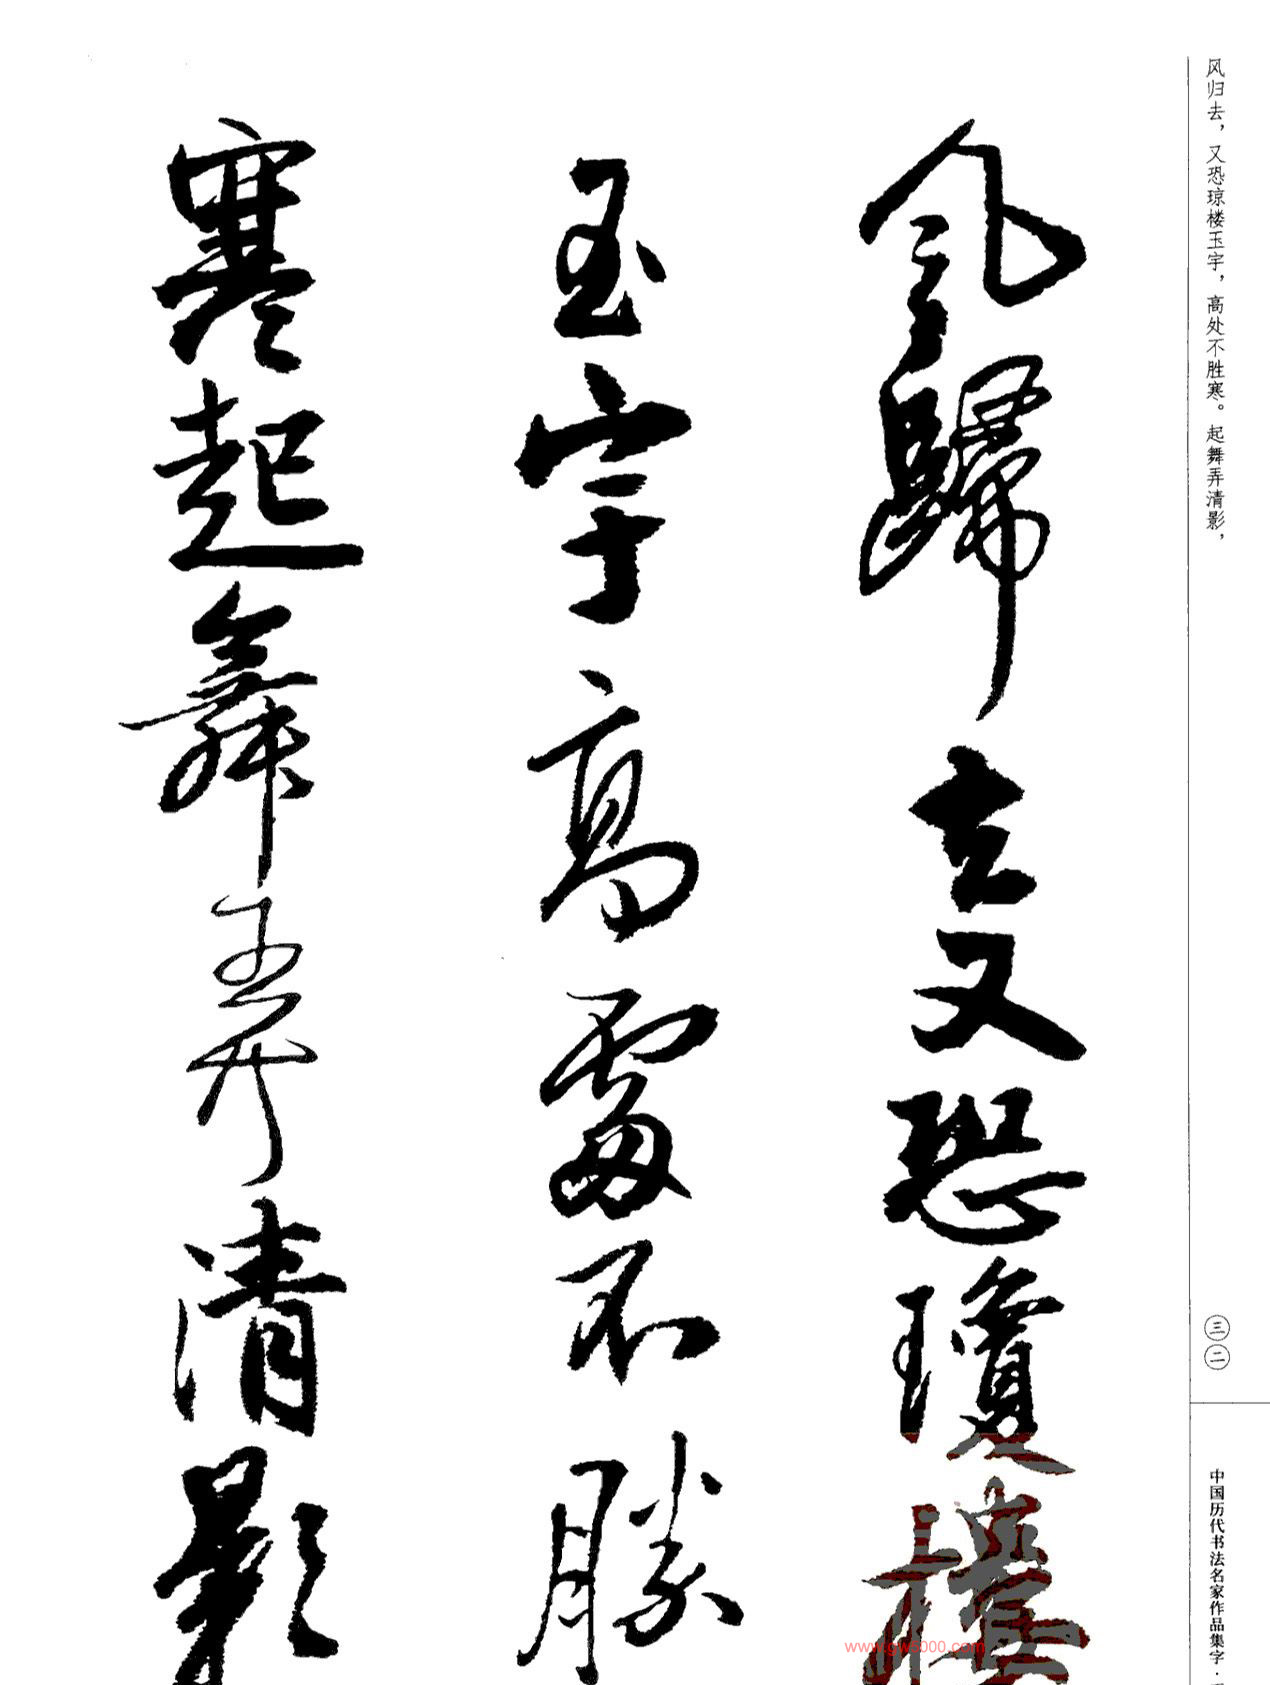 风归去，又恐琼楼玉宇，高处不胜寒。起舞弄清影，
風歸去又恐瓊樓
玉宇高處不勝
寒起舞弄清影
三二
中国历代书法名家作品集字·
www.gwt000.com